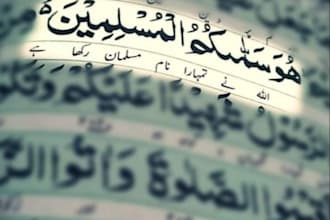 هُوَ سَمّٰىكُمُ الْمُسْلِمِيْنَ
اللہ نے تمہارا نام مسلمان رکھا ہے
الرَّسُوْلُ شَهِيْدًا عَلَيْكُمْ وَتَكُوْ
الصَّلٰوةَ وَاٰتُوا